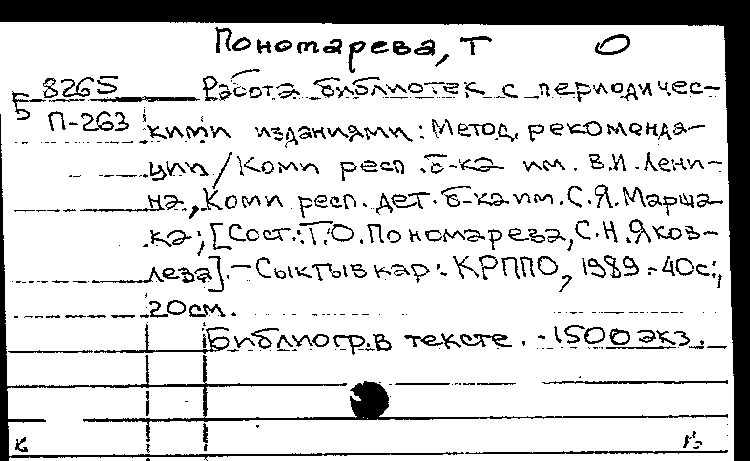 Пономарева, Т О
8265 Работа библиотек с периодичес-
Б П-263 кими изданиями: Метод. рекоменда-
ции / Коми респ. б-ка им. В.И. Лени-
на, Коми респ. дет. б-ка им. С.Я. Марша-
ка; [Сост.: Т.О. Пономарева, С.Н. Яков-
лева]. - Сыктывкар: КРППО, 1989. - 40с.;
20см.
Библиогр. в тексте. - 1500 экз.